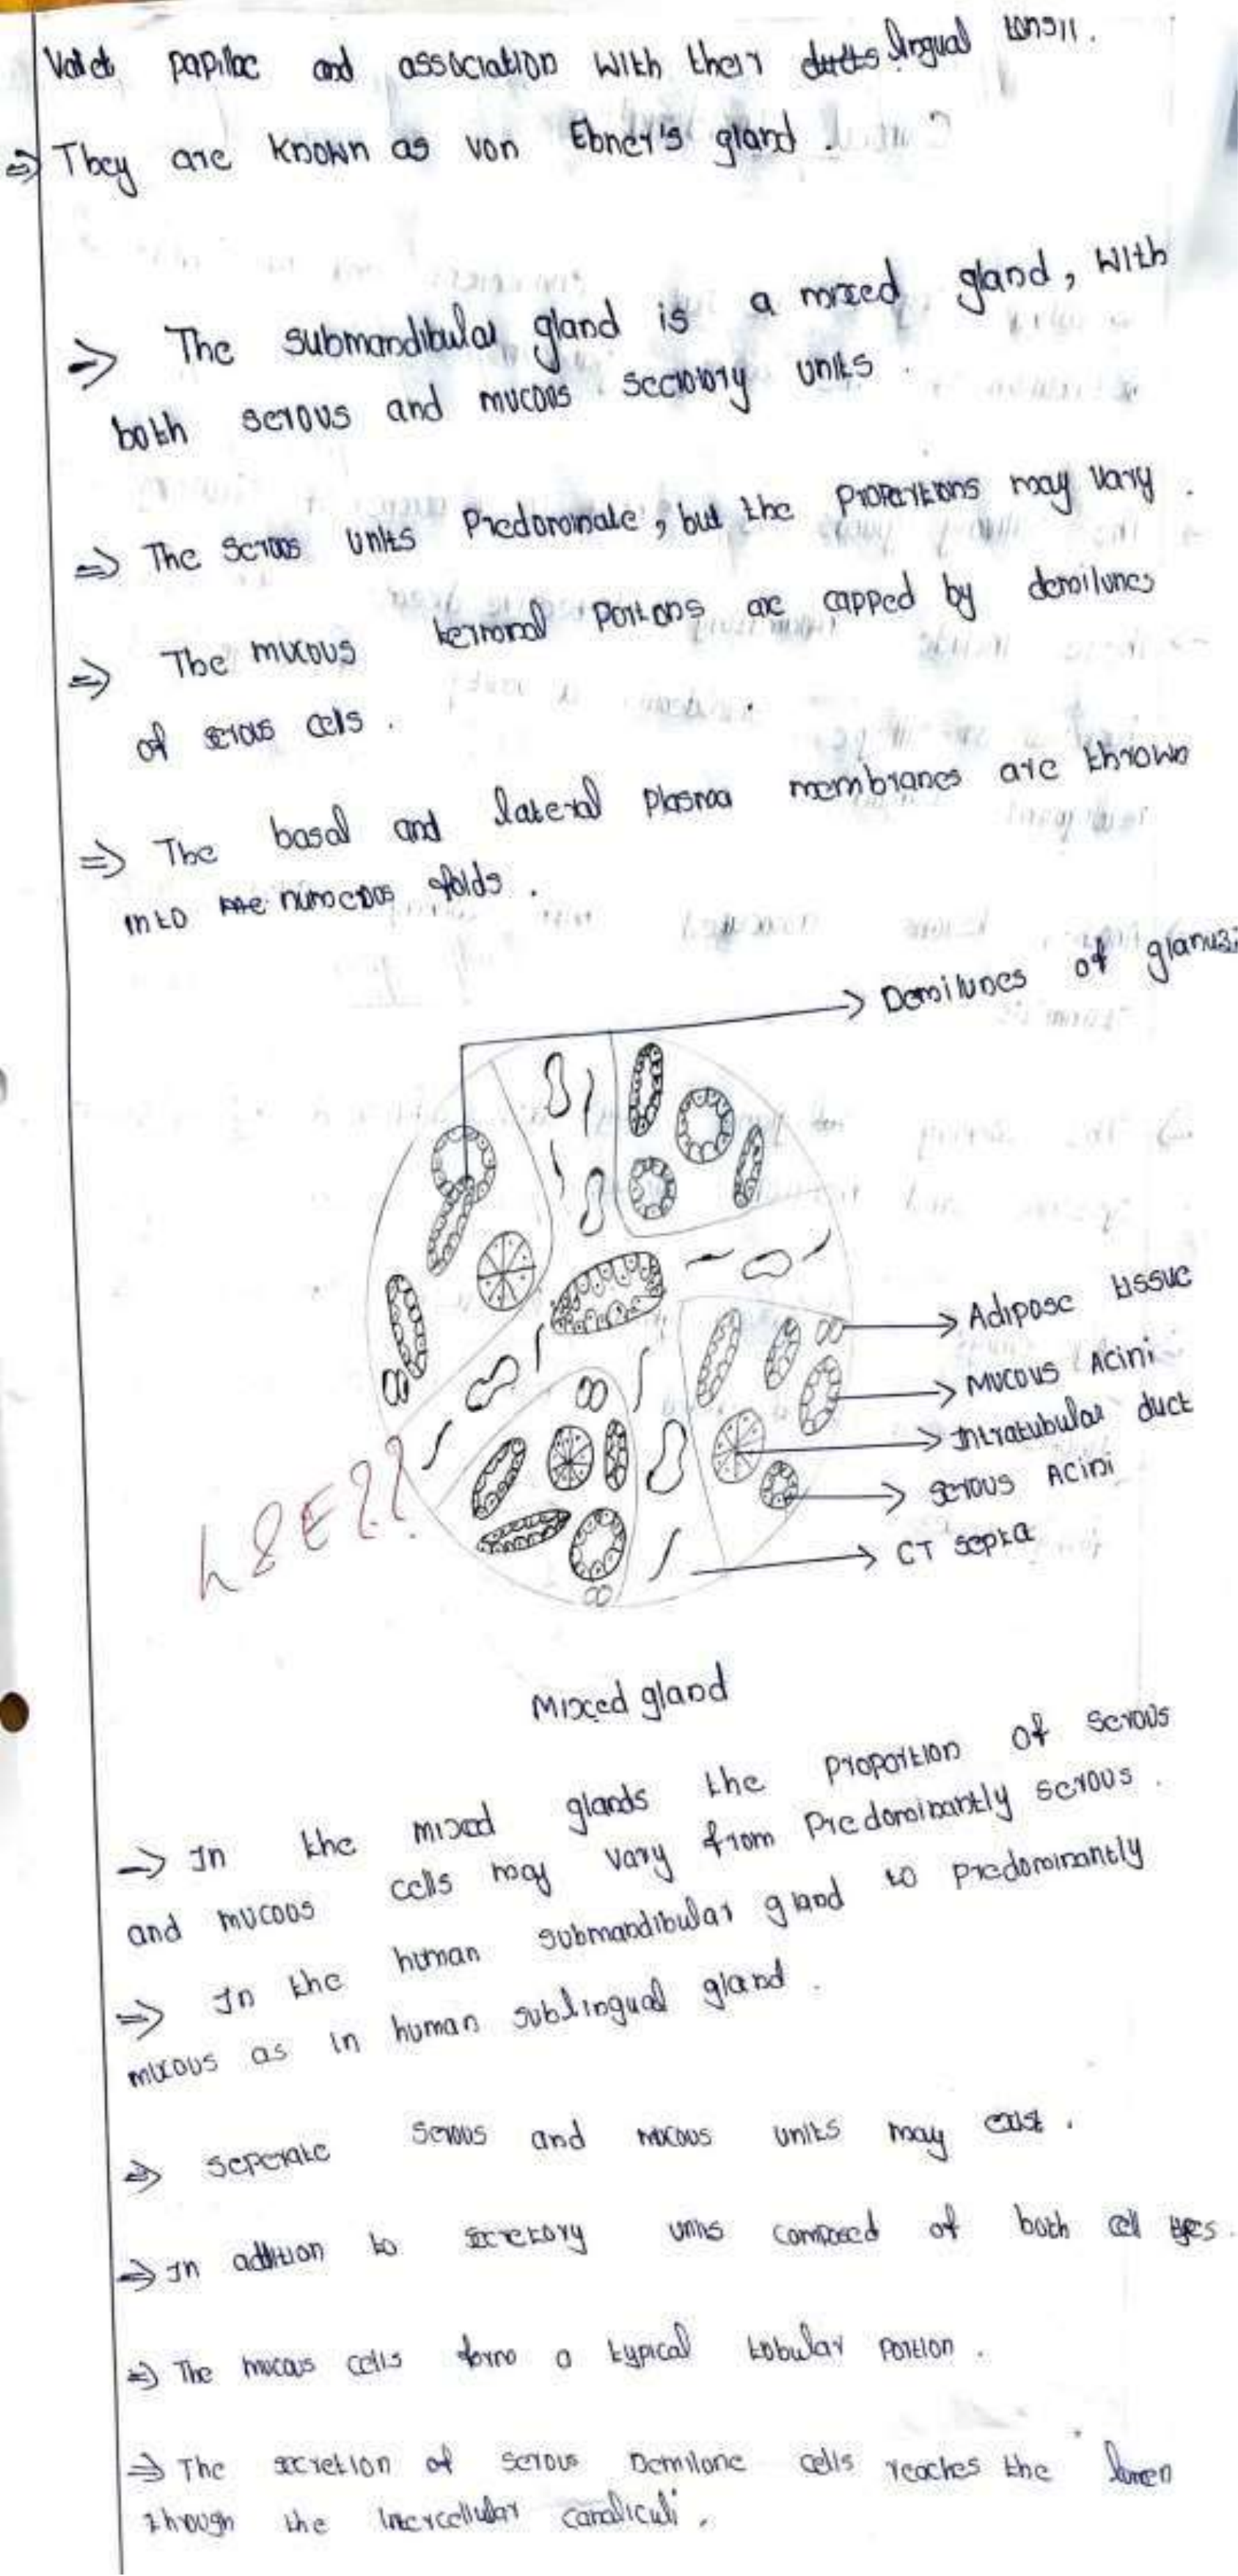 Valet papillae and association with their ducts lingual tonsil.
=> They are known as von Ebner's gland.
=> The submandibular gland is a mixed gland, with
both serous and mucous secretory units.
=> The serous units Predominate, but the proportions may vary.
=> The mucous terminal portions are capped by demilunes
of serous cells.
=> The basal and lateral plasma membranes are thrown
into the numerous folds.
Demilunes of
Adipose tissue
Mucous Acini
Intratubular duct
Serous Acini
CT septa
h & E??
Mixed gland
=> In the mixed glands the proportion of serous
and mucous cells may vary from Predominantly serous.
=> In the human submandibular gland to predominantly
mucous as in human sublingual gland.
=> seperate serous and mucous units may exist.
=> In addition to secretory units composed of both cell types.
=> The mucous cells form a typical tubular portion.
=> The secretion of serous Demilune cells reaches the lumen
through the intercellular canaliculi.